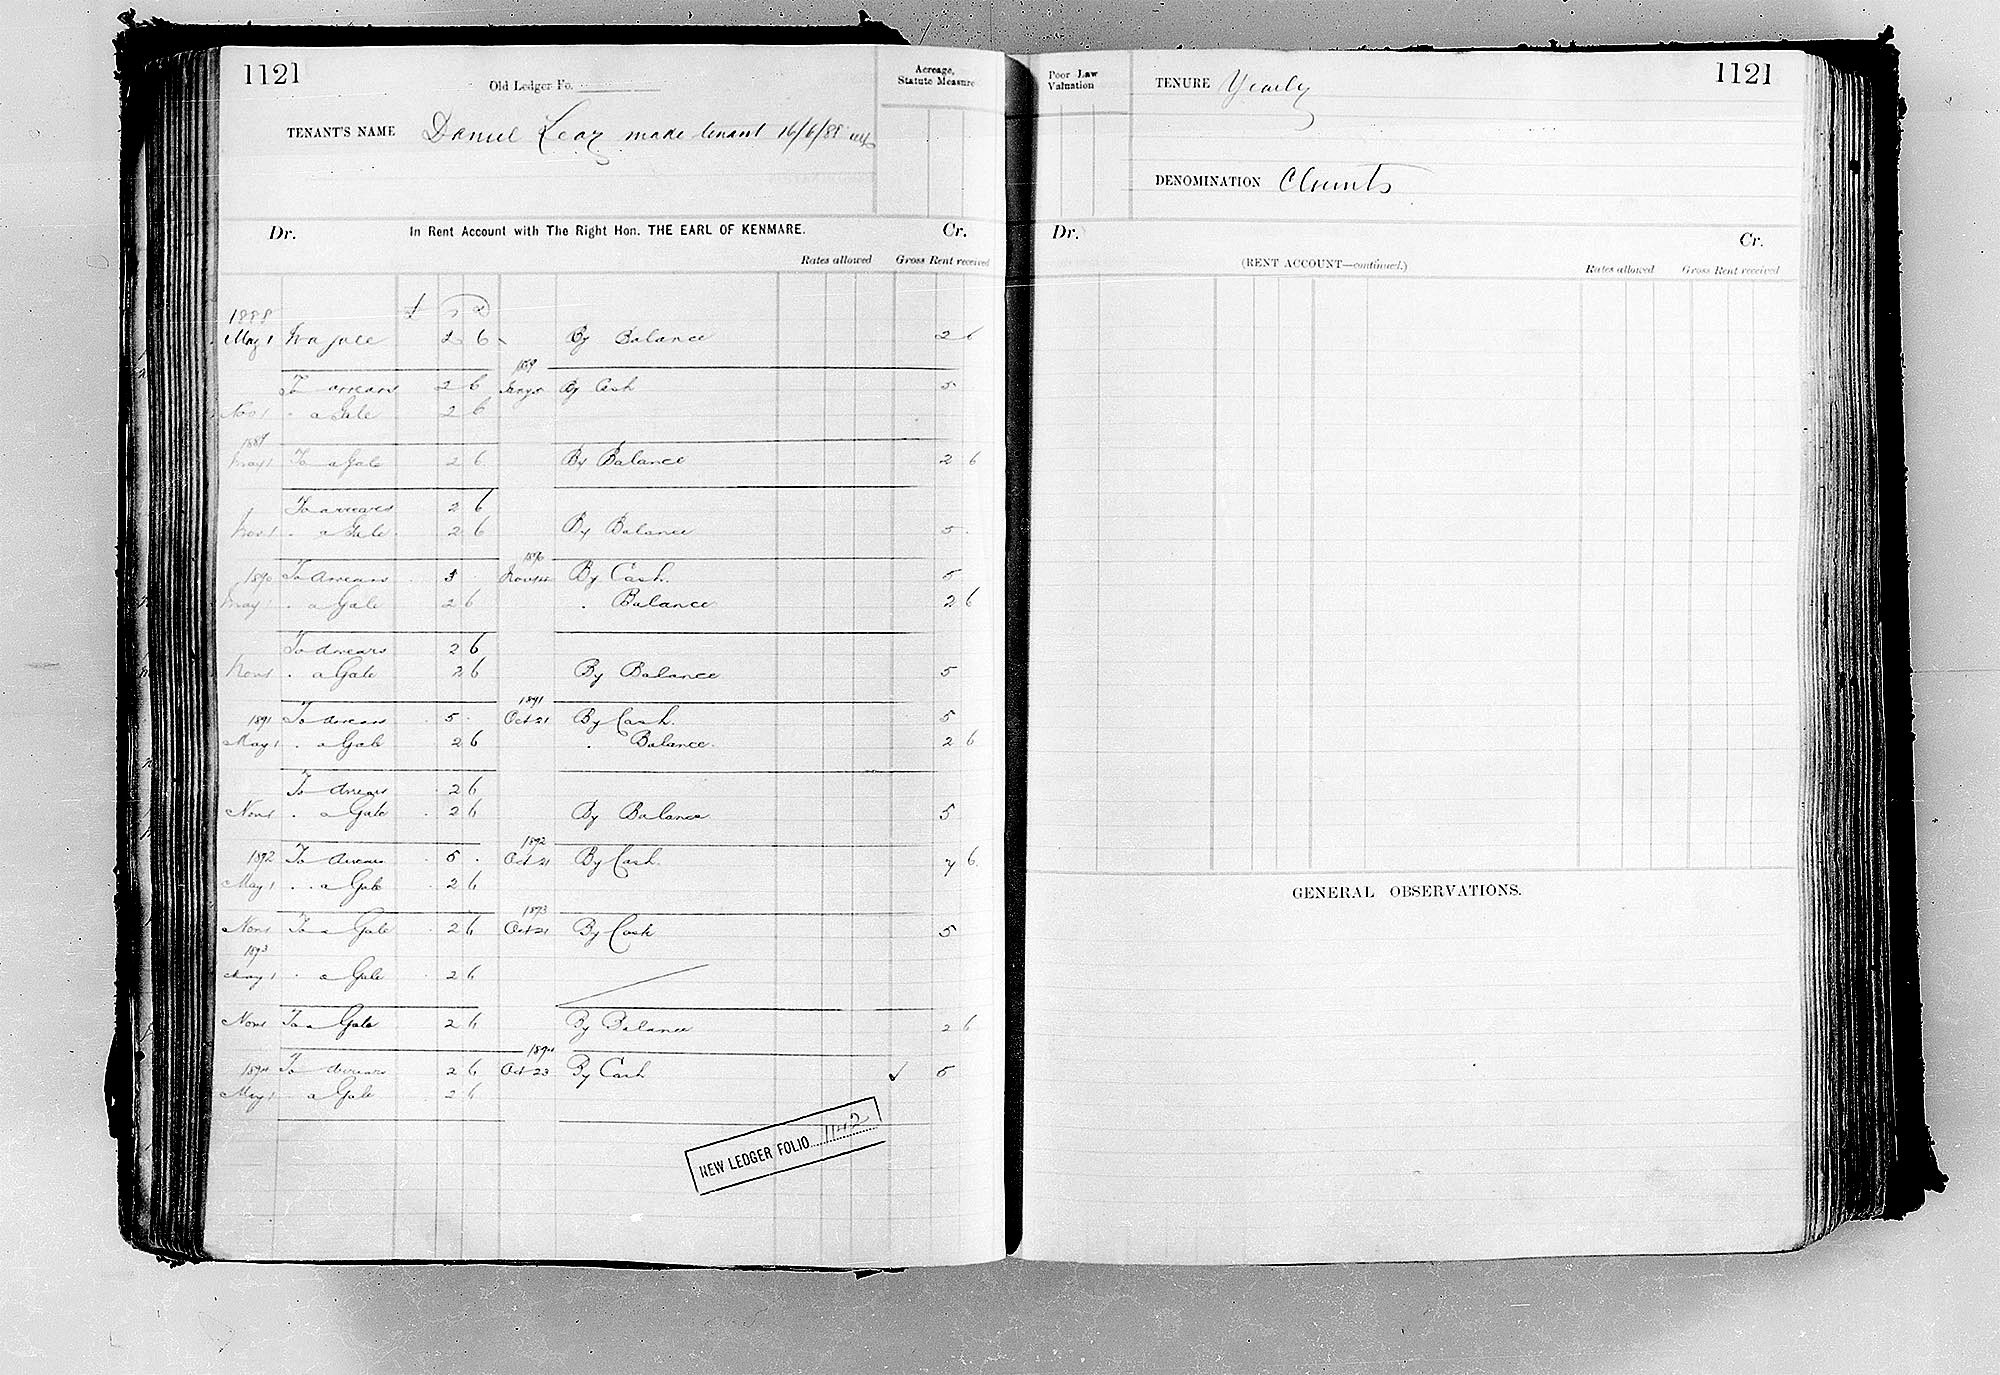 1121
Old Ledger Fo.
Acreage, Statute Measure
TENANT'S NAME Daniel Leary made tenant 16/6/88
Dr. In Rent Account with The Right Hon. THE EARL OF KENMARE. Cr.
Rates allowed Gross Rent received
£ s d
1888
May 1 2 6 By Balance 2 6
1889
To arrears 2 6 By Cash 5
Nov 1 " a Gale 2 6
1889
May 1 To a Gale 2 6 By Balance 2 6
To arrears 2 6
Nov 1 " a Gale 2 6 By Balance 5
1890
1890 To Arrears 5 Nov By Cash 5
May 1 " a Gale 2 6 " Balance 2 6
To Arrears 2 6
Nov 1 " a Gale 2 6 By Balance 5
1891
1891 To Arrears 5 Oct 21 By Cash 5
May 1 " a Gale 2 6 " Balance 2 6
To Arrears 2 6
Nov 1 " a Gale 2 6 By Balance 5
1892
1892 To Arrears 5 Oct 21 By Cash 7 6
May 1 " a Gale 2 6
1893
Nov 1 To a Gale 2 6 Oct 21 By Cash 5
1893
May 1 " a Gale 2 6
Nov 1 To a Gale 2 6 By Balance 2 6
1894
1894 To Arrears 2 6 Oct 23 By Cash 5
May 1 " a Gale 2 6
NEW LEDGER FOLIO 1142
Poor Law Valuation
TENURE Yearly
1121
DENOMINATION Clounts
Dr. Cr.
(RENT ACCOUNT—continued.)
Rates allowed Gross Rent received
GENERAL OBSERVATIONS.